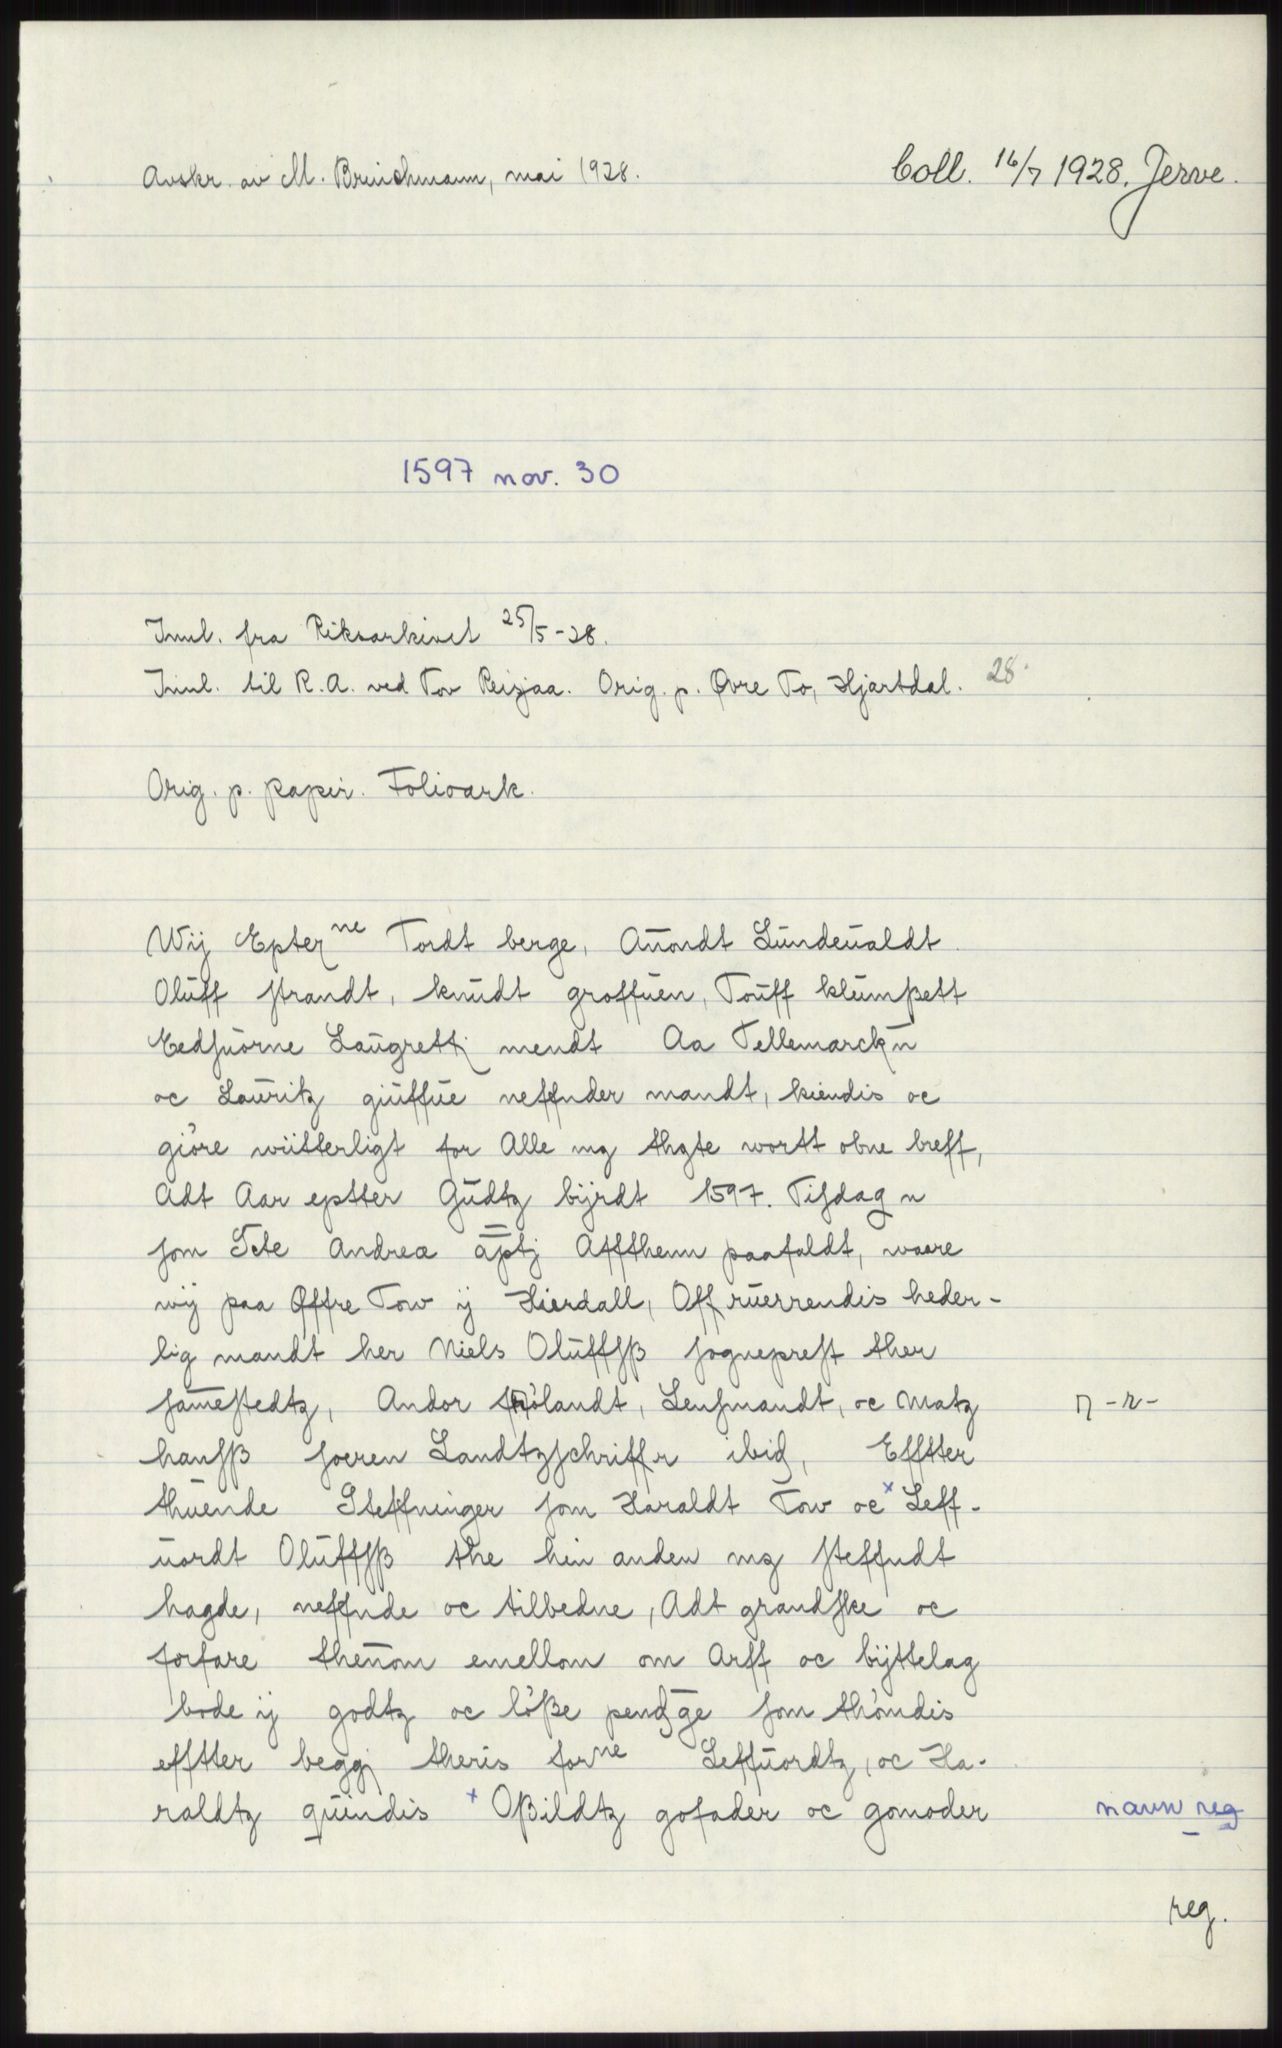 Avskr. av M. Brinchmann, mai 1928.
Coll. 16/7 1928. Jerve.
1597 nov. 30
Innl. fra Riksarkivet 25/5-28.
Innl. til R.A. ved Tov Reizjaa. Orig. p. Øvre To, Hjartdal. 28.
Orig. p. papir. Folioark.
Wij Epter ne Tordt berge, Auondt Lundeualdt
Oluff strandt, knudt groffuen, Touff klumßett
Eedsuorne Laugretti mendt Aa Tellemarckn
oc Lauritz giuffue neffnder mandt, kiendis oc
giöre witterligt for Alle mz thgte wortt obne breff,
Adt Aar eptter Gudtz byrdt 1597. Tisdag n
som Scte Andreæ aptj Affthenn paafaldt, waare
wij paa Øffre Tow ij Hierdall, Offruerrendis heder-
lig mandt her Niels Oluffsß sogneprest ther
samestedtz, Andor Hölandt, Lensmandt, oc Matz
hansß soeren Landtzschriffr ibid, Efftter
n-r-
thuende Steffninger som Haraldt Tow oc x Leff-
uordt Oluffsß the hin anden mz steffndt
hagde, neffnde oc tilbedne, Adt grandske oc
forfare thenom emellom om Arff oc byttelag
bode ij godtz oc löße pendge som thömdis
efftter beggi theris forne Leffuordtz, oc Ha-
raldtz quindis x Oßildtz gofader oc gomoder
navn reg
reg.